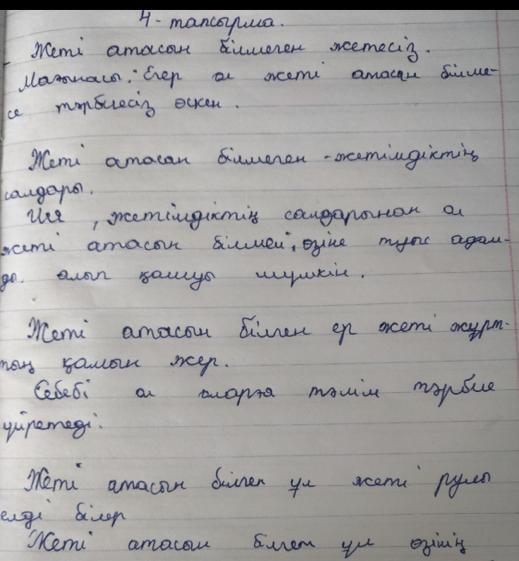 4-тапсырма.
Жеті атасын білмеген жетесіз.
Мағынасы: Егер ол жеті атасын білме-
се тәрбиесіз өскен.
Жеті атасан білмеген - жетімдіктің
салдары.
Ия, жетімдіктің салдарынан ол
жеті атасын білмей, өзіне туыс адам-
ды алып қашуы мүмкін.
Жеті атасын білген ер жеті жұрт-
тың қамын жер.
Себебі ол оларға тәлім тәрбие
үйретеді.
Жеті атасын білген ұл жеті рулы
елді білер
Жеті атасын білген ұл өзінің